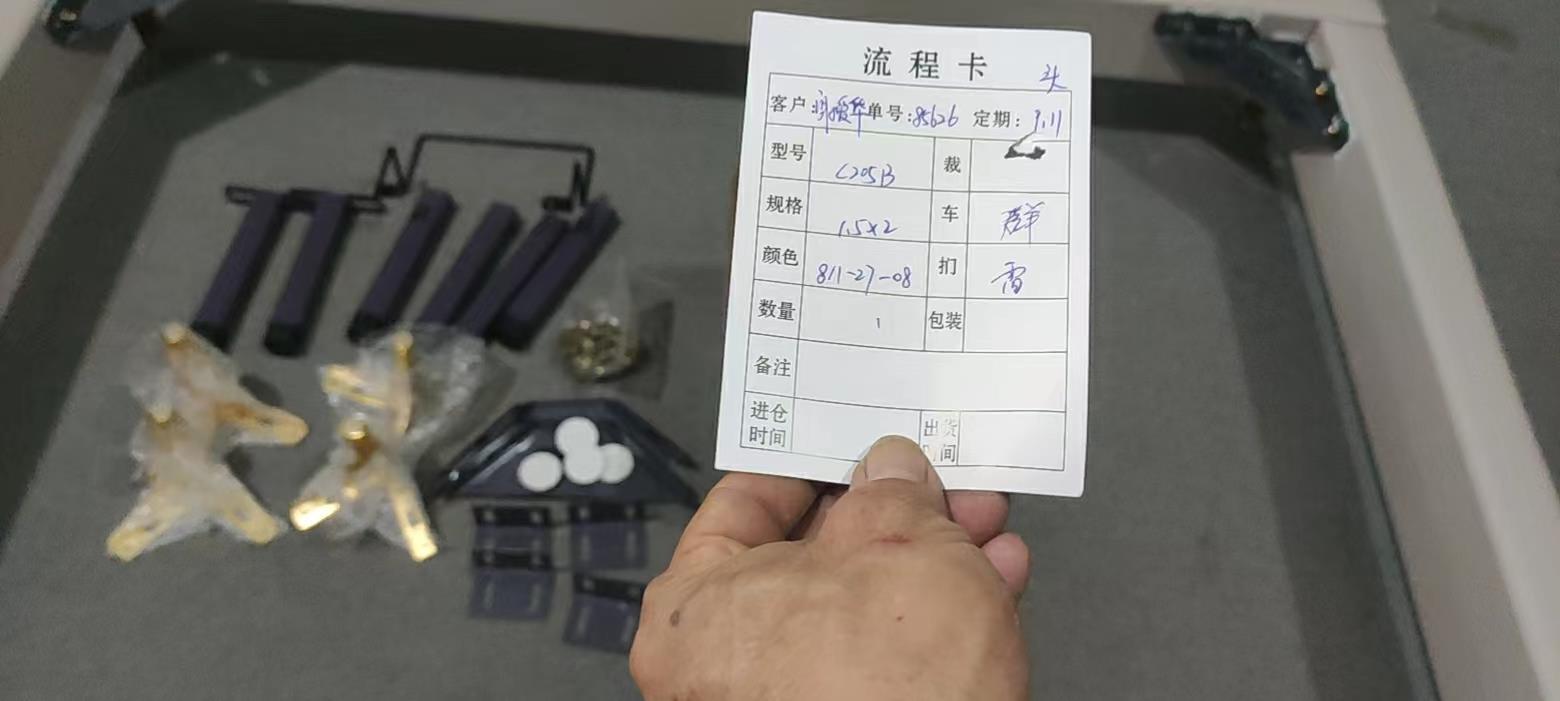 流程卡
头
客户: 华 单号: 85626 定期: 9.11
型号 C205B 裁
规格 1.5×2 车 群
颜色 811-27-08 扪 雷
数量 1 包装
备注
进仓时间 出货 间